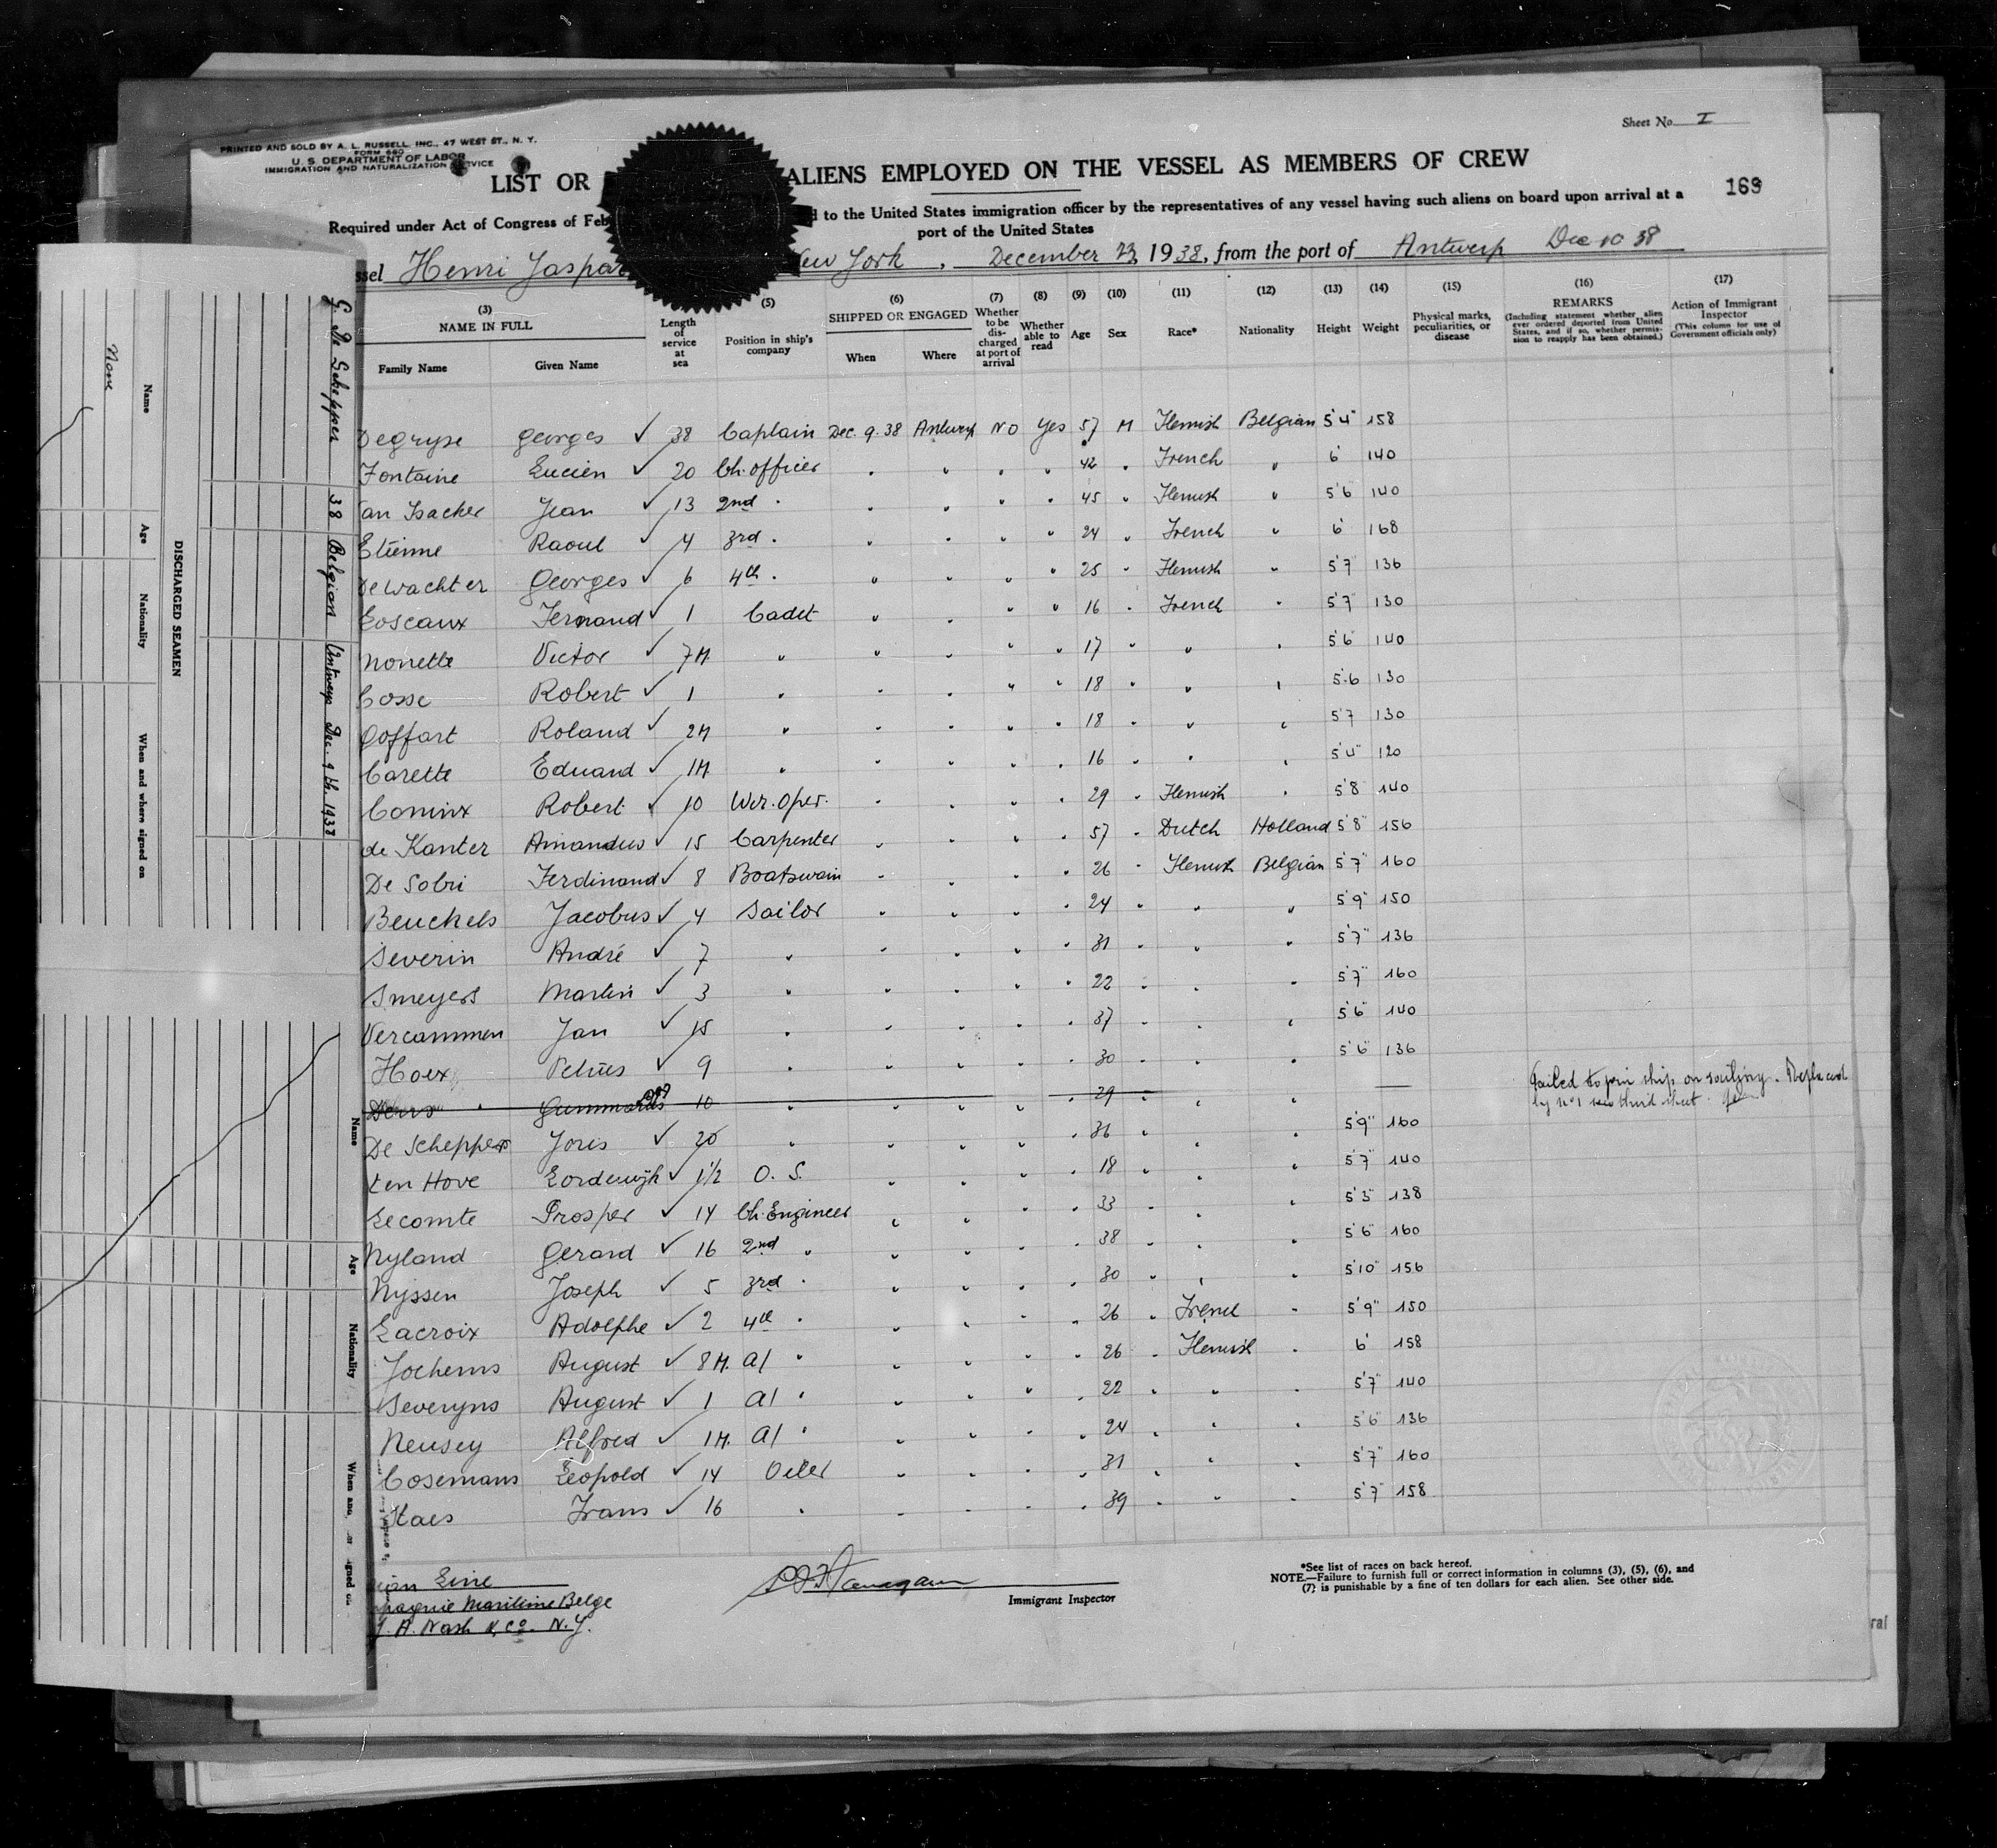 Sheet No. I
PRINTED AND SOLD BY A. L. RUSSELL, INC., 47 WEST ST., N. Y.
FORM 680
U. S. DEPARTMENT OF LABOR
IMMIGRATION AND NATURALIZATION SERVICE
LIST OR ALIENS EMPLOYED ON THE VESSEL AS MEMBERS OF CREW
169
Required under Act of Congress of Feb to the United States immigration officer by the representatives of any vessel having such aliens on board upon arrival at a
port of the United States
ssel Henri Jaspar New York, December 23, 1938, from the port of Antwerp Dec 10 38
(3) NAME IN FULL Family Name Given Name
Length of service at sea
(5) Position in ship's company
(6) SHIPPED OR ENGAGED When Where
(7) Whether to be discharged at port of arrival
(8) Whether able to read
(9) Age
(10) Sex
(11) Race*
(12) Nationality
(13) Height
(14) Weight
(15) Physical marks, peculiarities, or disease
(16) REMARKS (Including statement whether alien ever ordered deported from United States, and if so, whether permission to reapply has been obtained.)
(17) Action of Immigrant Inspector (This column for use of Government officials only)
Degryse Georges ✓ 38 Captain Dec. 9. 38 Antwerp No Yes 57 M Flemish Belgian 5'4" 158
Fontaine Lucien ✓ 20 Ch. officer " " " " 42 " French " 6' 140
an Isacker Jean ✓ 13 2nd " " " " " 45 " Flemish " 5'6 140
Etienne Raoul ✓ 4 3rd " " " " " 24 " French " 6' 168
De Wachter Georges ✓ 6 4th " " " " " 25 " Flemish " 5'7 136
Loscaux Fernand ✓ 1 Cadet " " " " 16 " French " 5'7 130
Nonette Victor ✓ 7M " " " " " 17 " " " 5'6 140
Cosse Robert ✓ 1 " " " " " 18 " " " 5'6 130
Goffart Roland ✓ 2M " " " " " 18 " " " 5'7 130
Carette Eduard ✓ 1M " " " " " 16 " " " 5'4" 120
Coninx Robert ✓ 10 Wir. Oper. " " " " 29 " Flemish " 5'8 140
de Kanter Amandus ✓ 15 Carpenter " " " " 57 " Dutch Holland 5'8" 156
De Sobri Ferdinand ✓ 8 Boatswain " " " " 26 " Flemish Belgian 5'7" 160
Beuckels Jacobus ✓ 4 Sailor " " " " 24 " " " 5'9" 150
Severin André ✓ 7 " " " " " 31 " " " 5'7" 136
Smeyers Martin ✓ 3 " " " " " 22 " " " 5'7" 160
Vercammen Jan ✓ 15 " " " " " 37 " " " 5'6" 140
Hoex Petrus ✓ 9 " " " " " 30 " " " 5'6" 136
Gummarus 10 " " " " " 29 " " " Failed to join ship on sailing. Replaced
by no 1 third sheet
De Schepper Joris ✓ 20 " " " " " 36 " " " 5'9" 160
ten Hove Lordewijk ✓ 1½ O. S. " " " " 18 " " " 5'7" 140
Lecomte Prosper ✓ 14 Ch. Engineer " " " " 33 " " " 5'3" 138
Nyland Gerard ✓ 16 2nd " " " " " 38 " " " 5'6" 160
Nyssen Joseph ✓ 5 3rd " " " " " 30 " " " 5'10" 156
Lacroix Adolphe ✓ 2 4th " " " " " 26 " French " 5'9" 150
Jochems August ✓ 8M. A/ " " " " " 26 " Flemish " 6' 158
Severyns August ✓ 1 A/ " " " " " 22 " " " 5'7" 140
Neusey Alfred ✓ 1M. A/ " " " " " 24 " " " 5'6" 136
Cosemans Leopold ✓ 14 Oiler " " " " 31 " " " 5'7" 160
Staes Frans ✓ 16 " " " " " 39 " " " 5'7" 158
Line
Maritime Belge
A. Nash & Co. N. Y.
Immigrant Inspector
*See list of races on back hereof.
NOTE.—Failure to furnish full or correct information in columns (3), (5), (6), and
(7) is punishable by a fine of ten dollars for each alien. See other side.
ral
DISCHARGED SEAMEN
Name Age Nationality When and where signed on
None
G. De Schepper 38 Belgian Antwerp Dec. 9th. 1938
Name Age Nationality